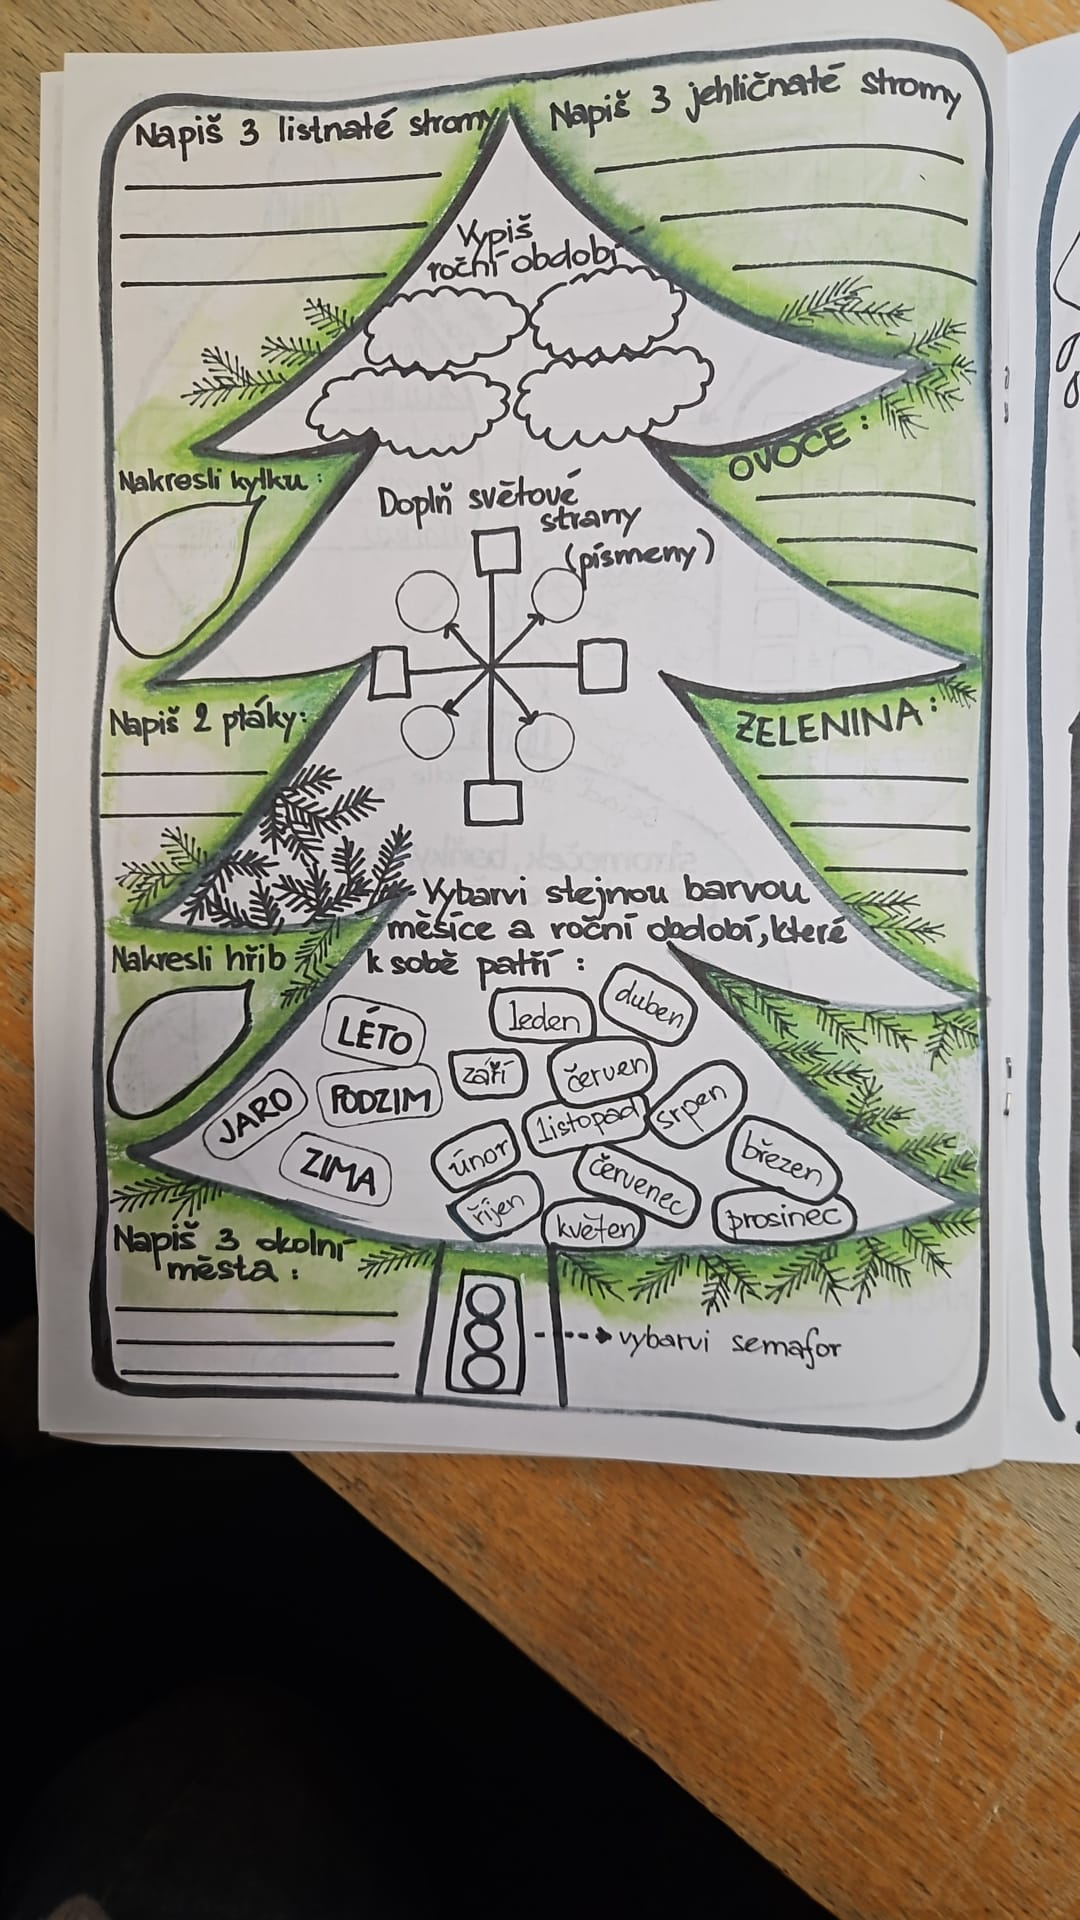 Napiš 3 listnaté stromy
Napiš 3 jehličnaté stromy
Vypiš
roční období
Nakresli kytku :
OVOCE :
Doplň světové
strany
(písmeny)
Napiš 2 ptáky:
ZELENINA :
Vybarvi stejnou barvou
měsíce a roční období, které
k sobě patří :
Nakresli hřib
LÉTO
leden
duben
září
červen
JARO
PODZIM
listopad
srpen
ZIMA
únor
červenec
březen
říjen
květen
prosinec
Napiš 3 okolní
města :
vybarvi semafor